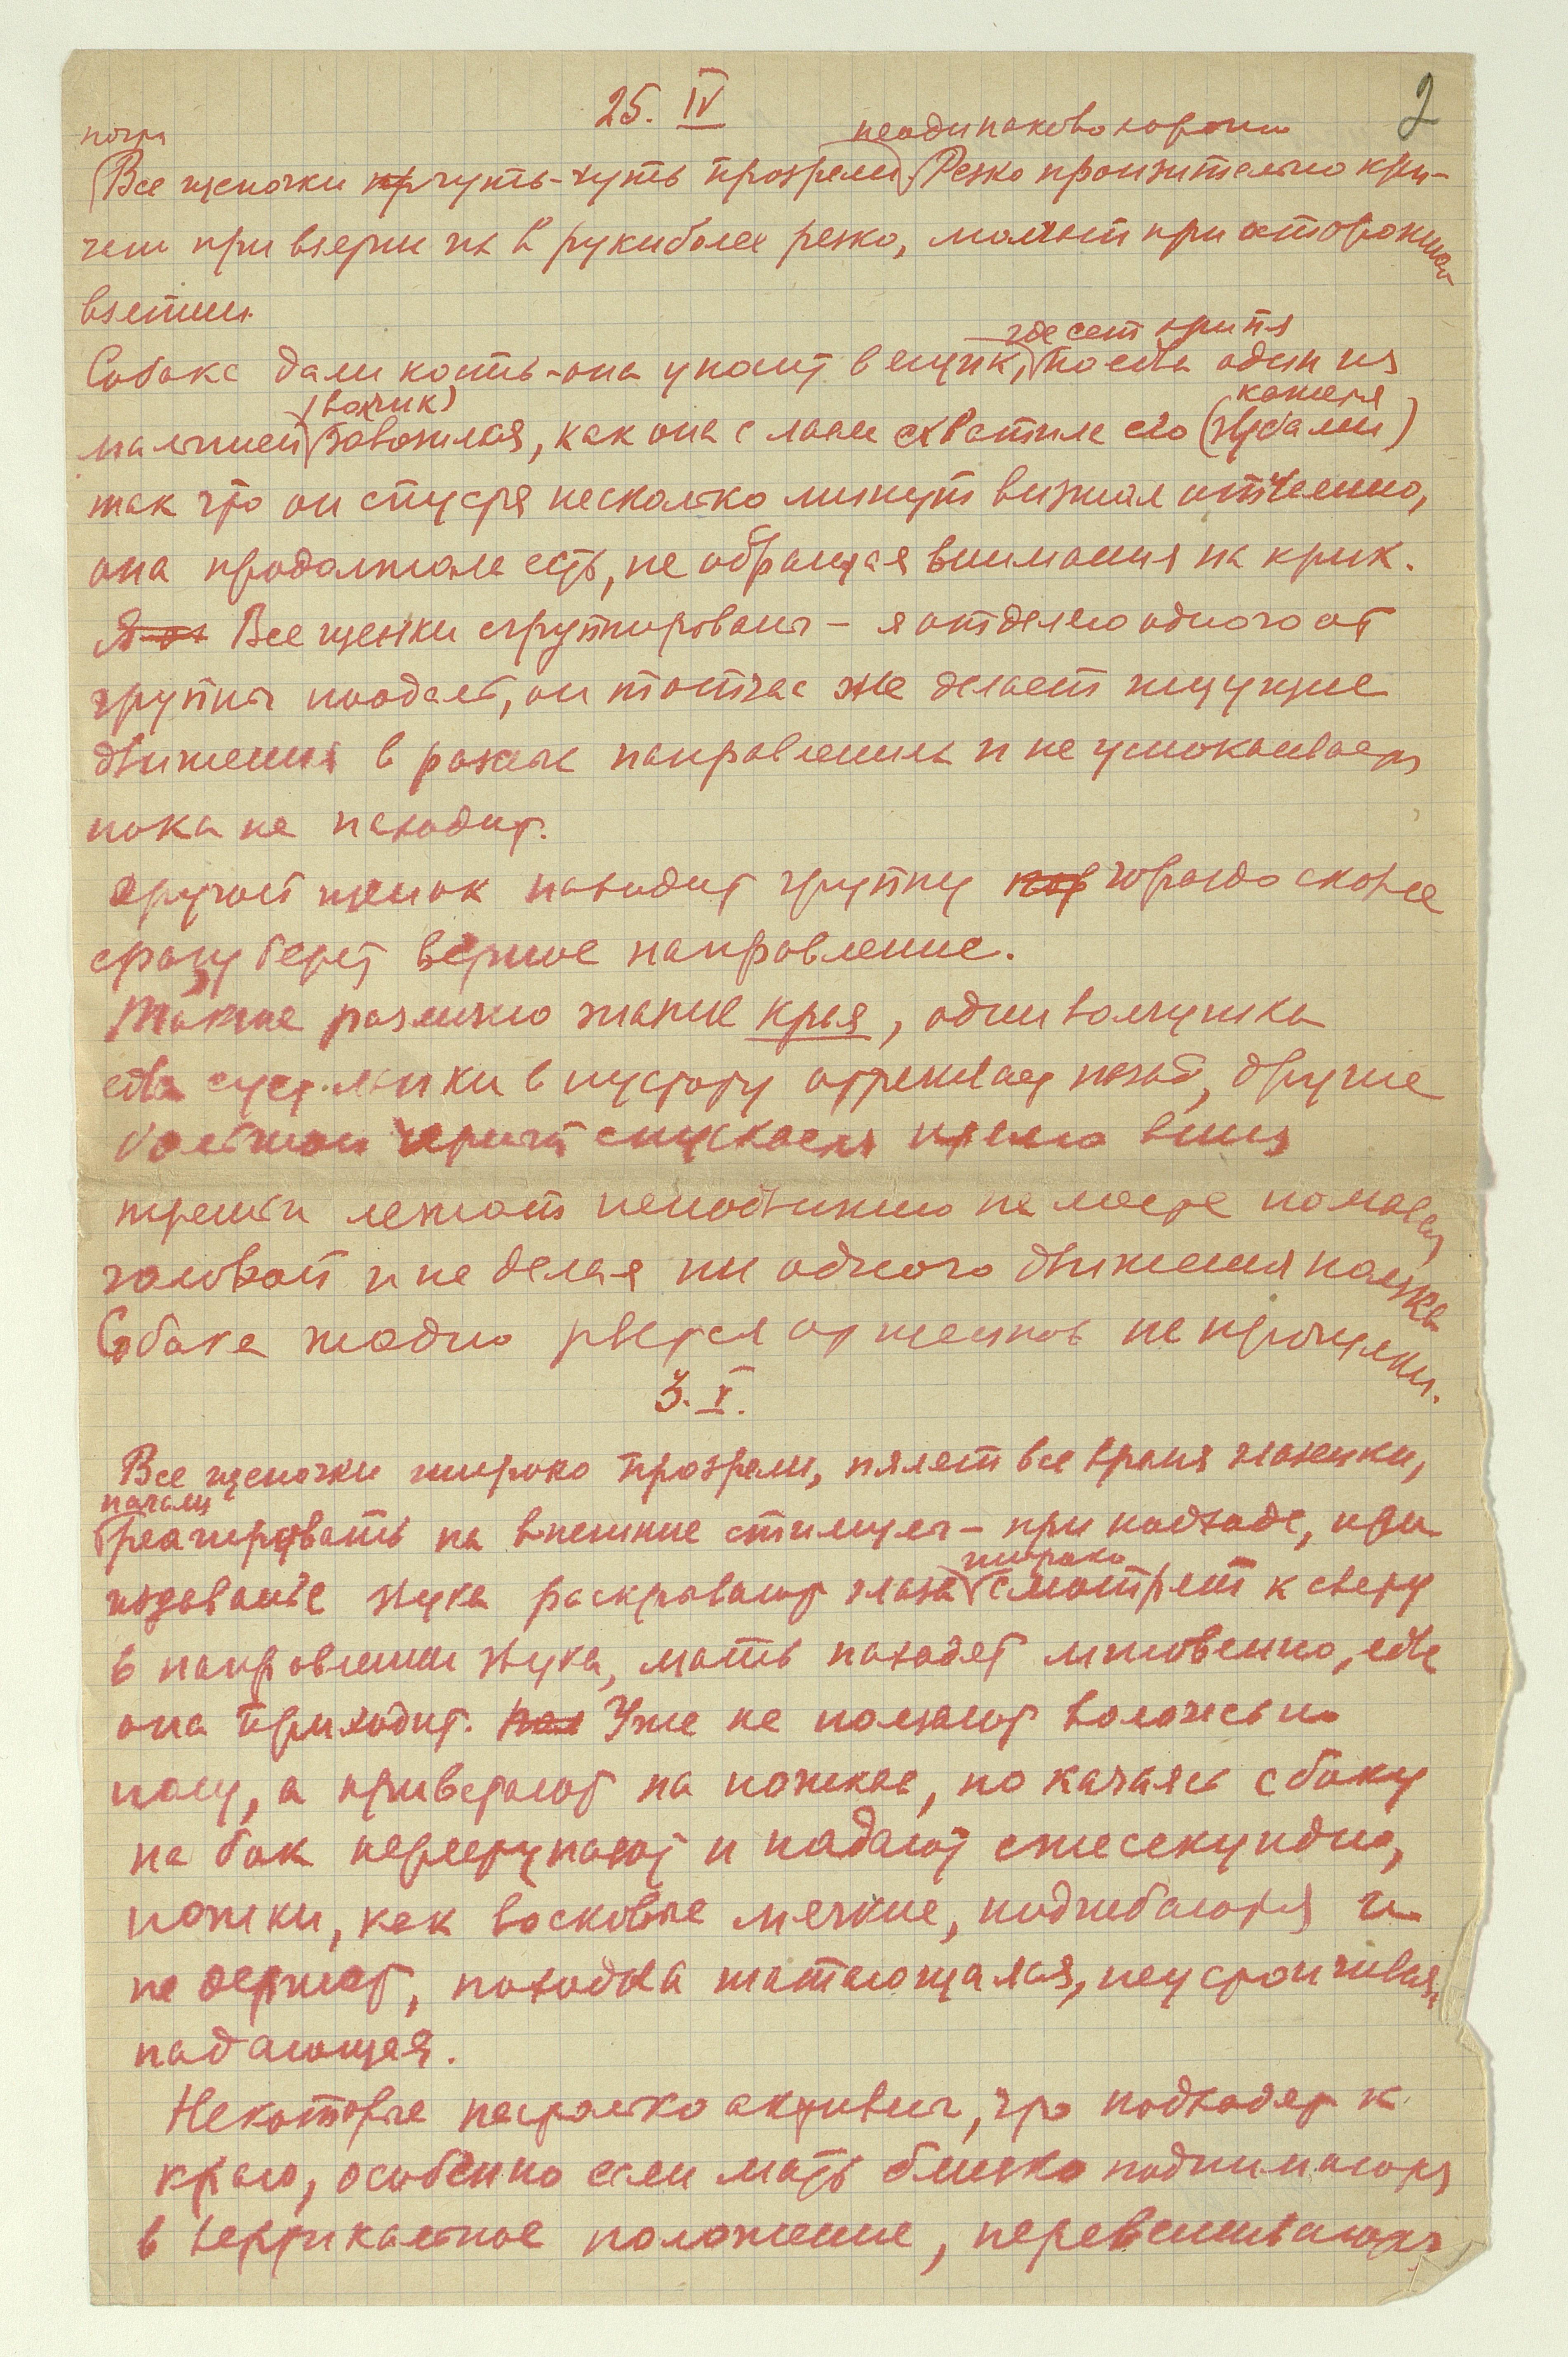 25. IV
2
почти неодинаково хорошо
Все щеночки чуть-чуть прозрели. Резко пронзительно кри-
чат при взятии их в руки более резко, молчат при осторожном
взятии.
где сет крипя
Собаке дали кость - она уносит в ящик, едва один из
(волчик) кажется
малышей завозился, как она с лаем схватила его (зубами)
так что он спустя несколько минут визжал отчаянно,
она продолжала есть, не обращая внимания на крик.
Все щенки сгруппированы - я отделяю одного от
группы поодаль, он тотчас же делает ищущие
движения в разных направлениях и не успокаивается
пока не находит.
Другой щенок находит группу гораздо скорее
сразу берет верное направление.
Также различно знание края, одни волчушка
едва сует лапки в пустоту отдергивает назад, другие
большой черный спускается прямо вниз
третьи лежат неподвижно на месте помавая
головой и не делая ни одного движения
Собака жадно рвется от щенков на прогулки.
3. V.
Все щеночки широко прозрели, пялят все время глазенки,
начали
реагировать на внешние стимулы - при подходе, при
широко
издаванье звука раскрывают глаза смотрят к свету
в направлении звука, мать находят мгновенно, едва
она приходит. Уже не ползают волочась по
полу, а привстают на ножках, но качаясь с боку
на бок переступают и падают ежесекундно,
ножки, как восковые мягкие, подгибаются и
не держат, походка шатающаяся, неустойчивая,
падающая.
Некоторые настолько активны, что подходят к
краю, особенно если мать близко поднимаются
в вертикальное положение, перевешиваются